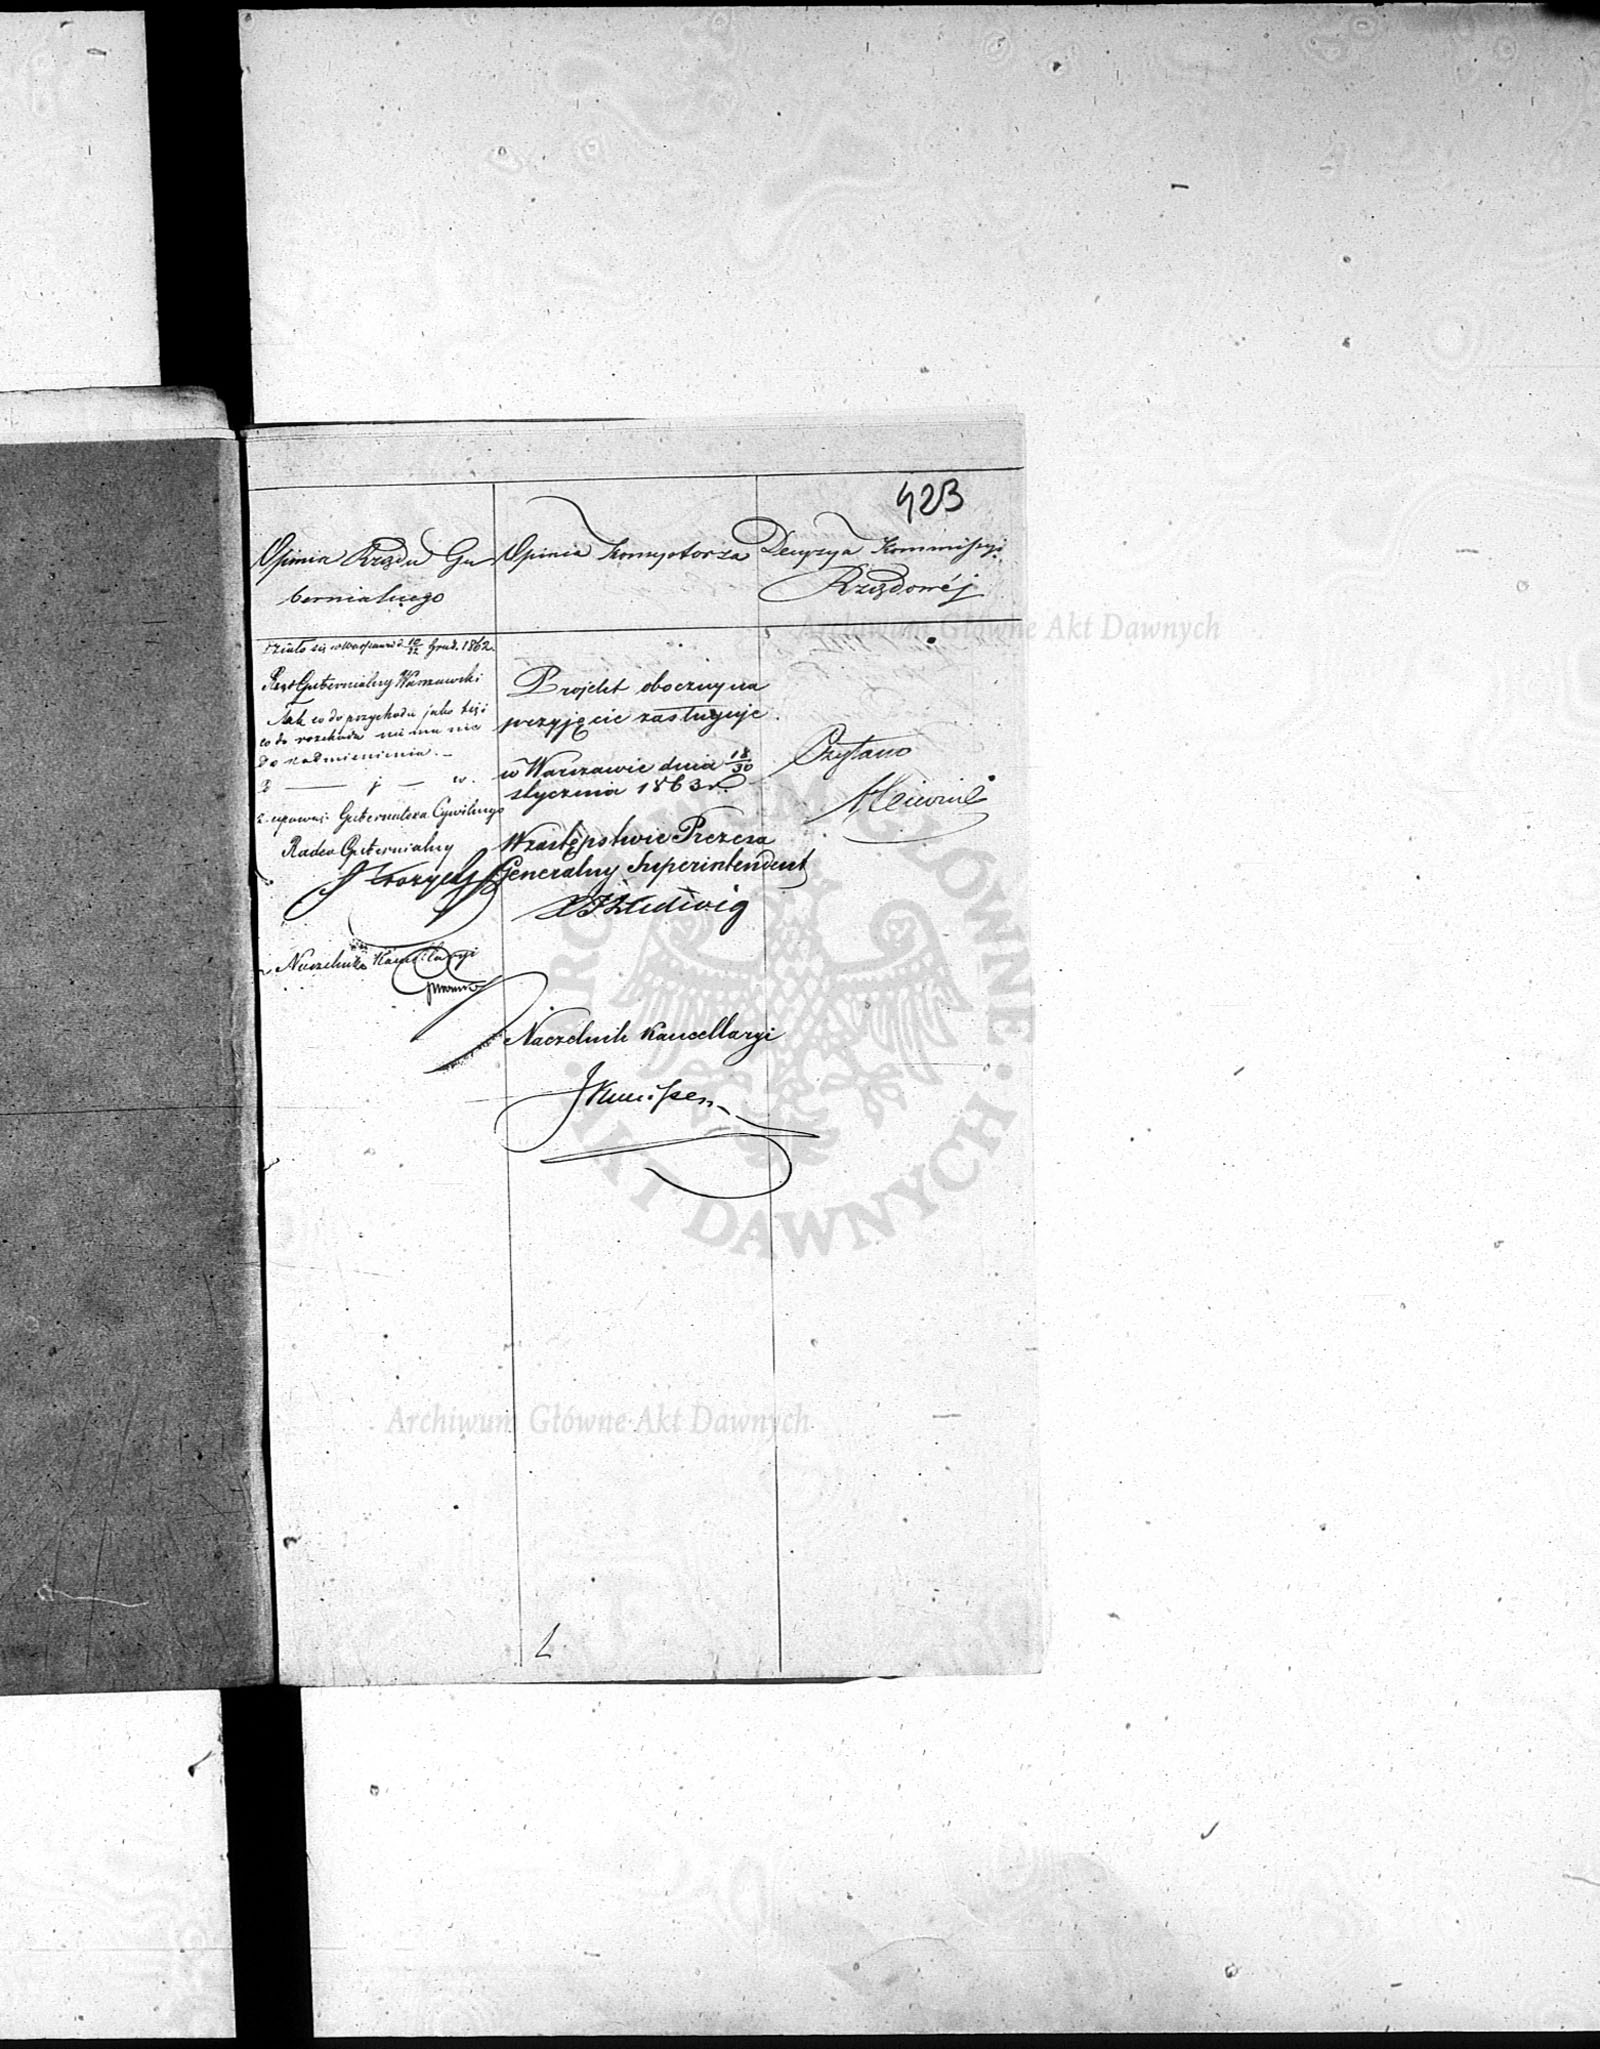 423
Opinia Rządu Gu
bernialnego
Opinia Konsystorza
Decyzya Kommissyi
Rządowéj
Działo się w Warszawie d. 10/22 Grud. 1862.
Rząd Gubernialny Warszawski
Tak co do przychodu jako też i
co do rozchodu nic ma nic
do nadmienienia. —
z upoważ: Gubernatora Cywilnego
Radca Gubernialny
Naczelnik Kancellaryi
Projekt oboczny na
przyjęcie zasługuje.
w Warszawie dnia 18/30
stycznia 1863 r.
W zastępstwie Prezesa
Generalny Superintendent
Ludwig
Naczelnik Kancellaryi
Czytano
Archiwum Główne Akt Dawnych
ARCHIWUM GŁÓWNE · AKT DAWNYCH ·
Archiwum Główne Akt Dawnych